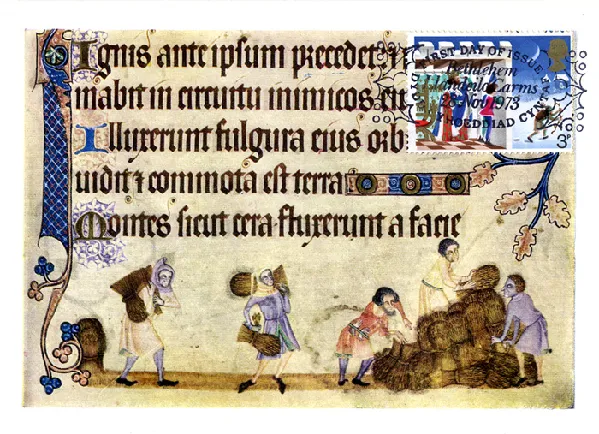 Ignis ante ipsum precedet
mabit in circuitu inimicos
Illuxerunt fulgura eius orb
uidit ⁊ commota est terra
Montes sicut cera fluxerunt a facie
FIRST DAY OF ISSUE
Bethlehem
Llandeilo Carms
28 Nov 1973
DYDD CYHOEDDIAD CYNTAF
3P